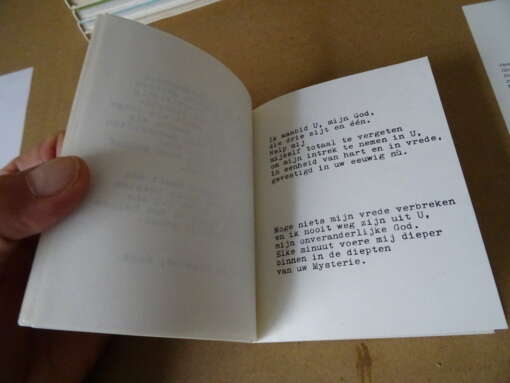 Ik aanbid U, mijn God,
die drie zijt en één.
Help mij
mijzelf totaal te vergeten
om mijn intrek te nemen in U,
in eenheid van hart en in vrede,
gevestigd in uw eeuwig nü.
Moge niets mijn vrede verbreken
en ik nooit weg zijn uit U,
mijn onveranderlijke God.
Elke minuut voere mij dieper
binnen in de diepten
van uw Mysterie.